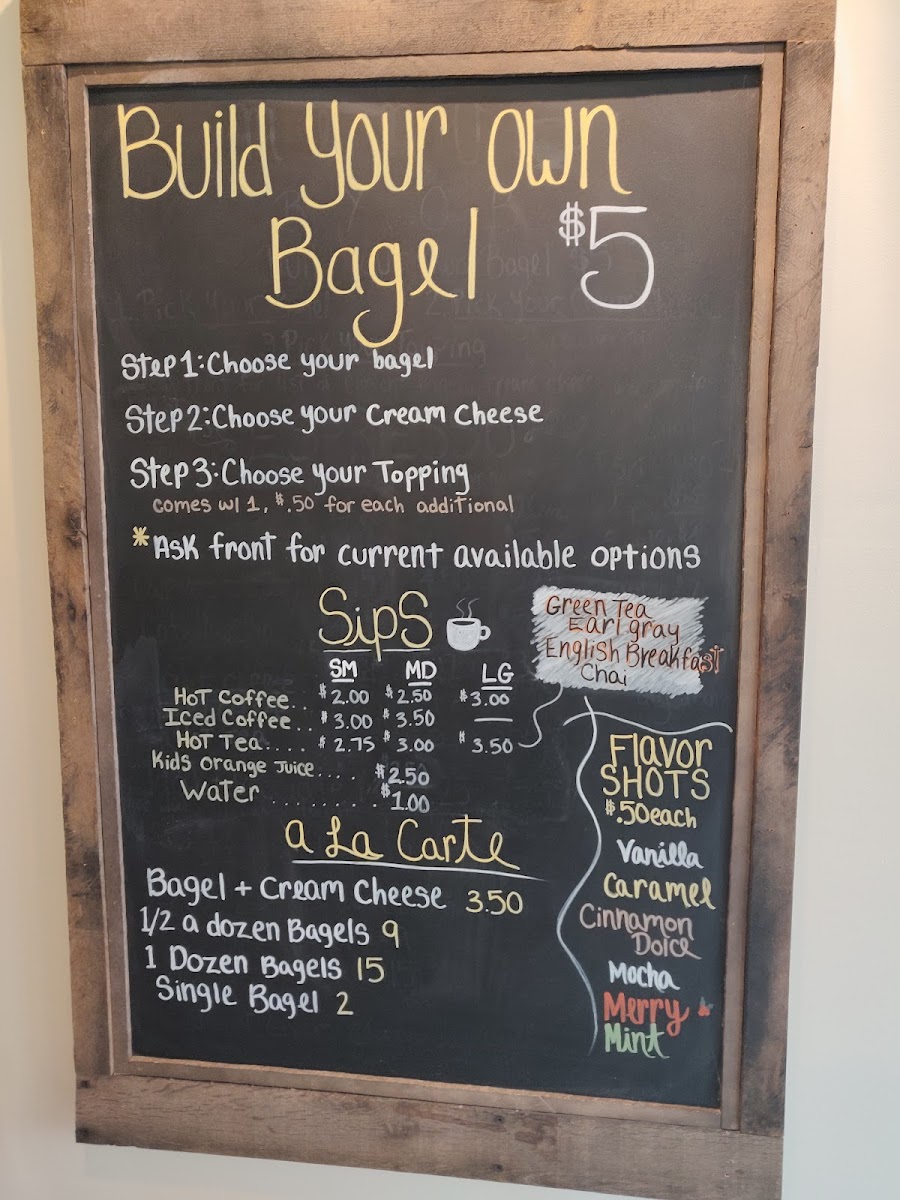 Build Your own
Bagel $5
Step 1: Choose your bagel
Step 2: Choose your Cream Cheese
Step 3: Choose your Topping
comes w/ 1, $.50 for each additional
*Ask front for current available options
Sips
SM MD LG
Hot Coffee.. $2.00 $2.50 $3.00
Iced Coffee.. $3.00 $3.50 —
Hot Tea.... $2.75 $3.00 $3.50
Kids Orange Juice.... $2.50
Water ........ $1.00
Green Tea
Earl gray
English Breakfast
Chai
Flavor
SHOTS
$.50 each
Vanilla
Caramel
Cinnamon
Dolce
Mocha
Merry
Mint
a La Carte
Bagel + Cream Cheese 3.50
1/2 a dozen Bagels 9
1 Dozen Bagels 15
Single Bagel 2